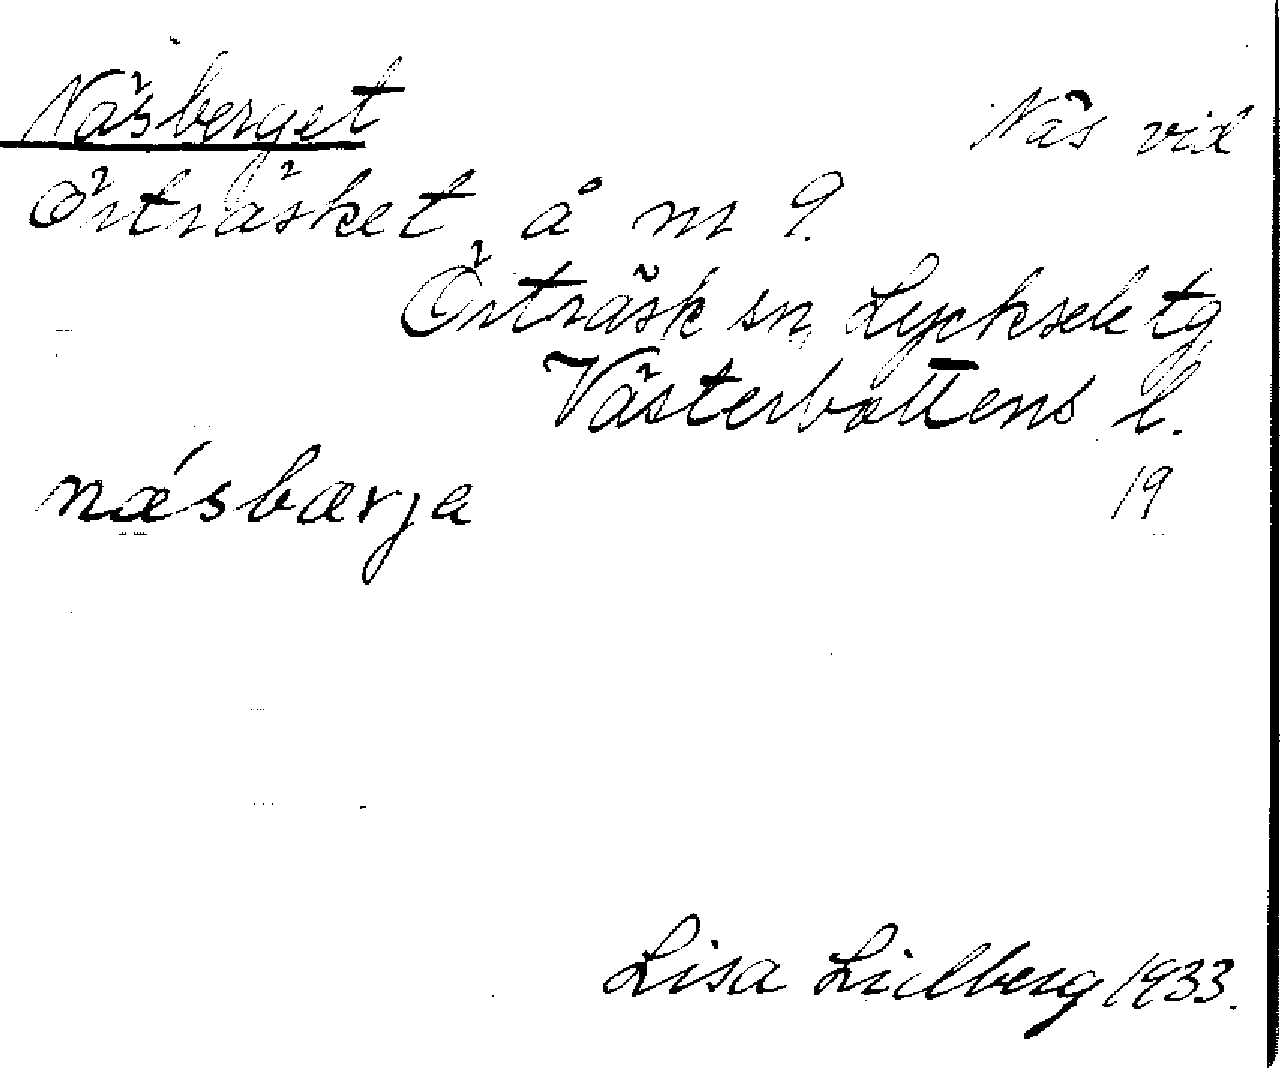 Näsberget Näs vid
Örträsket å m 9.
Örträsk sn, Lycksele tg
Västerbottens l.
næ´sbærja 19
Lisa Lidberg 1933.